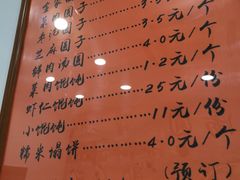 菜汤圆子……3.5元/个
芝麻圆子……3.5元/个
鲜肉汤圆……4.0元/个
菜肉馄饨……1.2元/个
虾仁馄饨……25元/份
小馄饨……11元/份
糯米塌饼……4.0元/个
(预订)